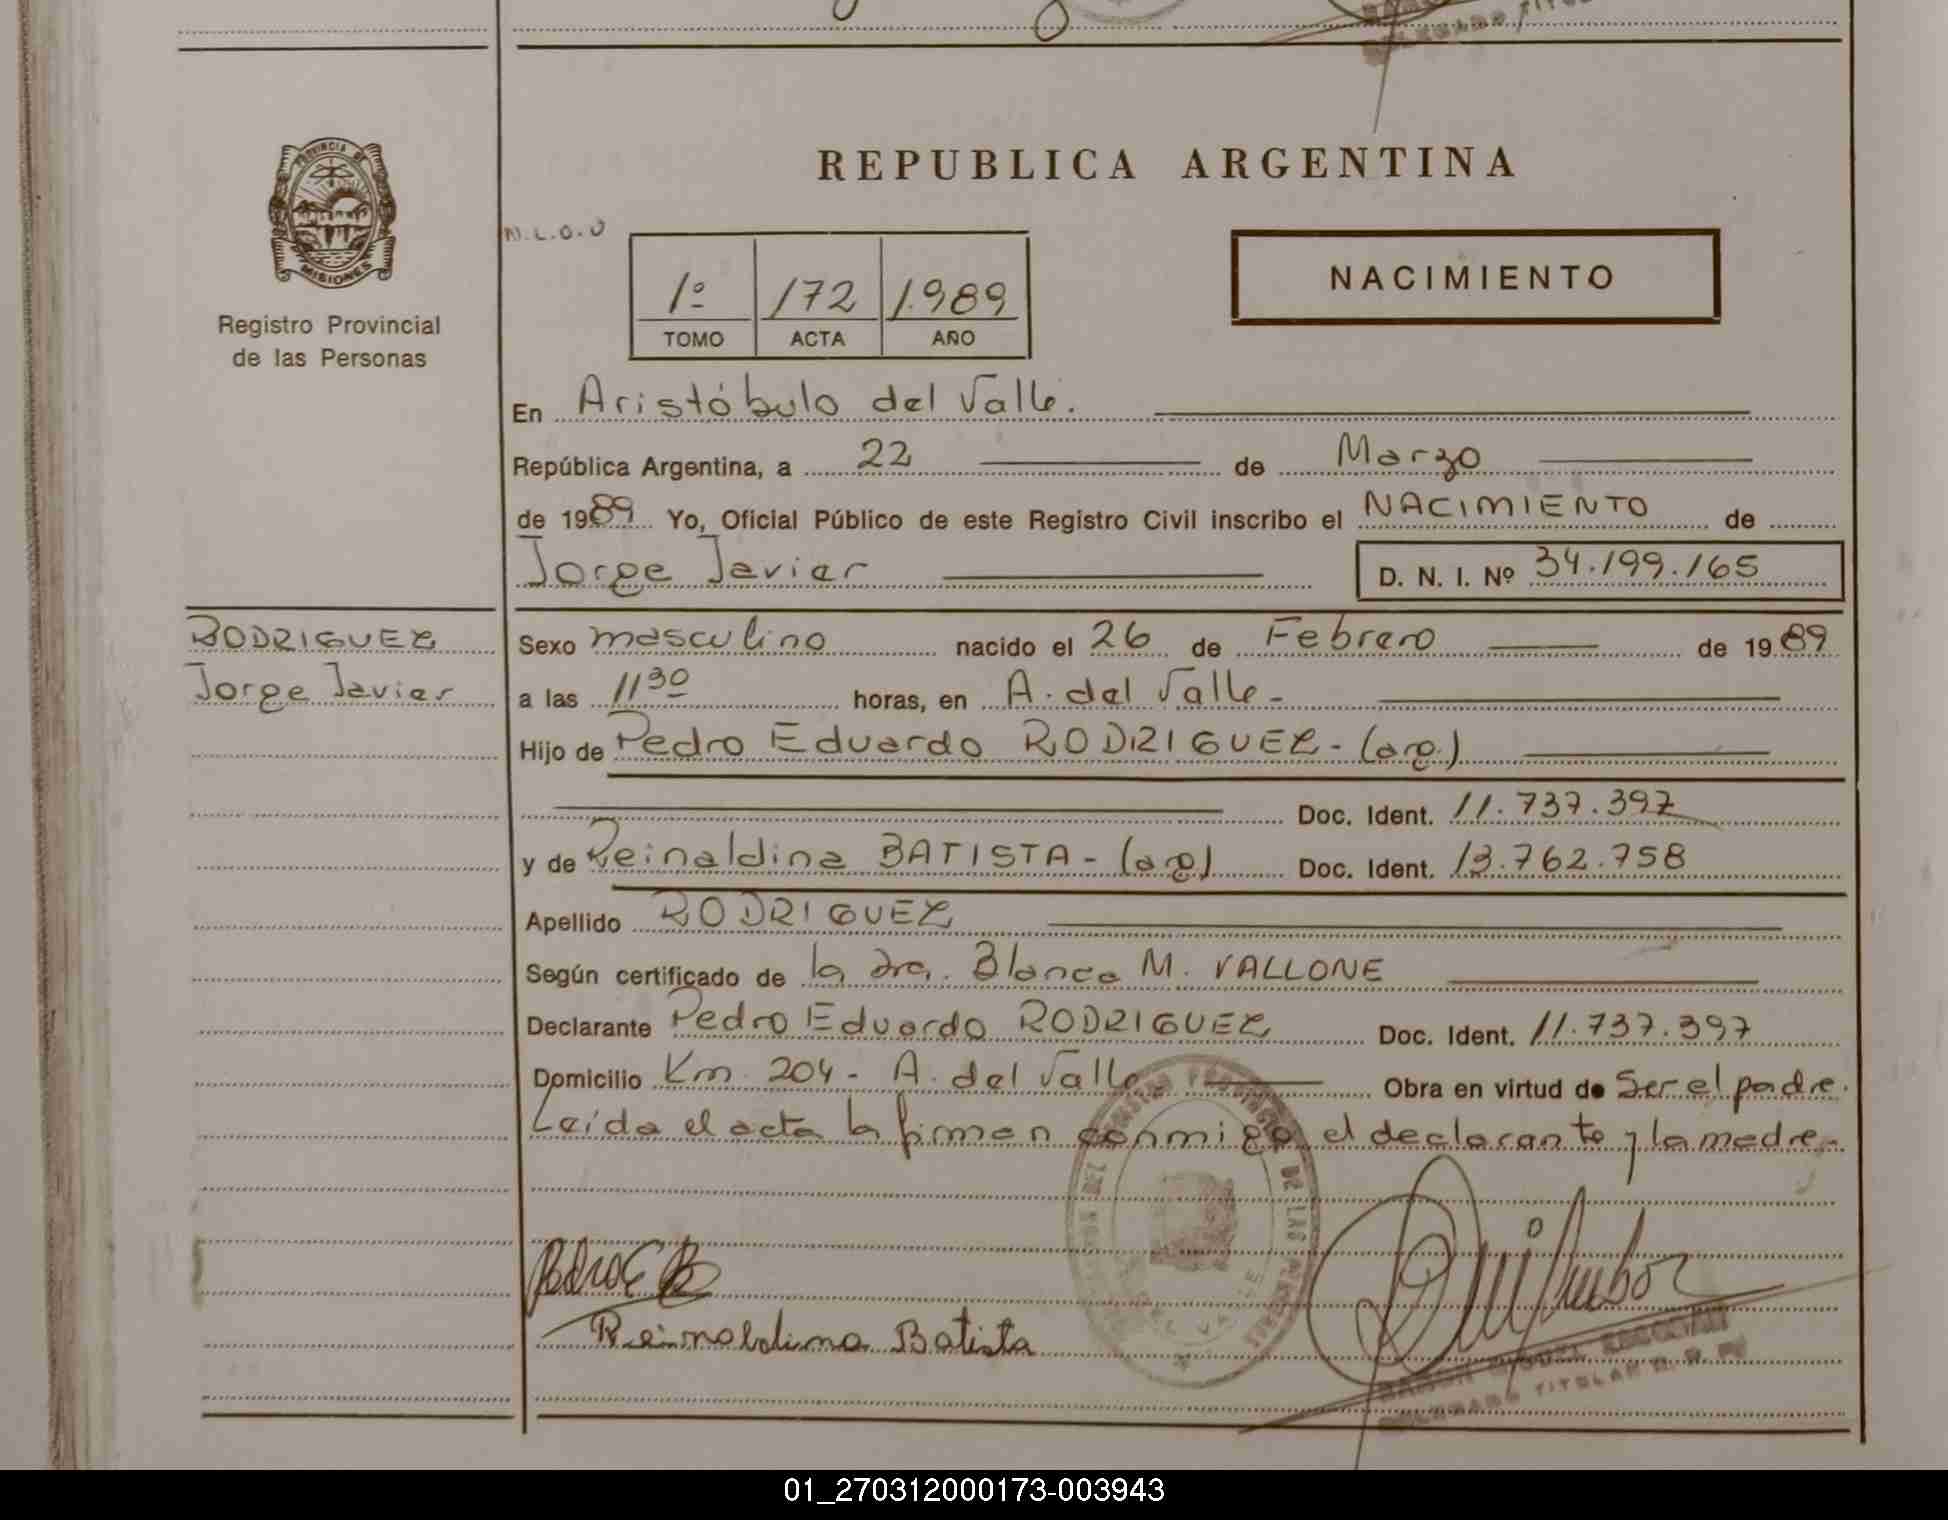 REPUBLICA ARGENTINA
PROVINCIA DE
MISIONES
Registro Provincial
de las Personas
N.L.O.U
1º 172 1.989
TOMO ACTA AÑO
NACIMIENTO
En Aristóbulo del Valle.
República Argentina, a 22 de Marzo
de 1989 Yo, Oficial Público de este Registro Civil inscribo el NACIMIENTO de
Jorge Javier D. N. I. Nº 34.199.165
RODRIGUEZ
Jorge Javier
Sexo masculino nacido el 26 de Febrero de 1989
a las 11 30 horas, en A. del Valle -
Hijo de Pedro Eduardo RODRIGUEZ - (arg.)
Doc. Ident. 11.737.397
y de Reinaldina BATISTA - (arg) Doc. Ident. 13.762.758
Apellido RODRIGUEZ
Según certificado de la Dra. Blanca M. VALLONE
Declarante Pedro Eduardo RODRIGUEZ Doc. Ident. 11.737.397
Domicilio Km. 204 - A. del Valle - Obra en virtud de Ser el padre.
Leída el acta la firman conmigo el declarante y la madre.
Pedro E
Reinaldina Batista
DELEGADO TITULAR
01_270312000173-003943